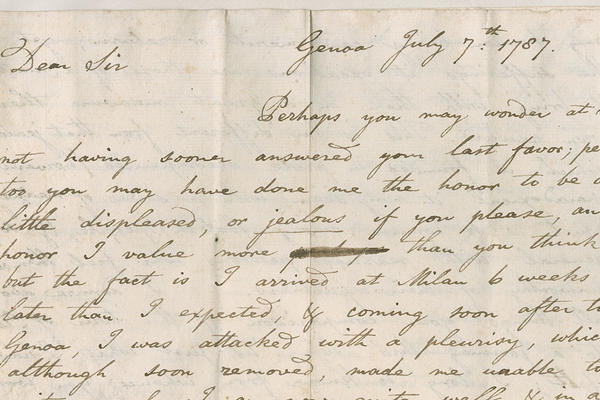 Genoa July 7:th 1787.
Dear Sir
Perhaps you may wonder at
not having sooner answered your last favor; pe
too you may have done me the honor to be a
little displeased, or jealous if you please, an
honor I value more than you think
but the fact is I arrived at Milan 6 weeks
later than I expected, & coming soon after to
Genoa, I was attacked with a pleurisy, whic
although soon removed, made me unable to
quite well & in a